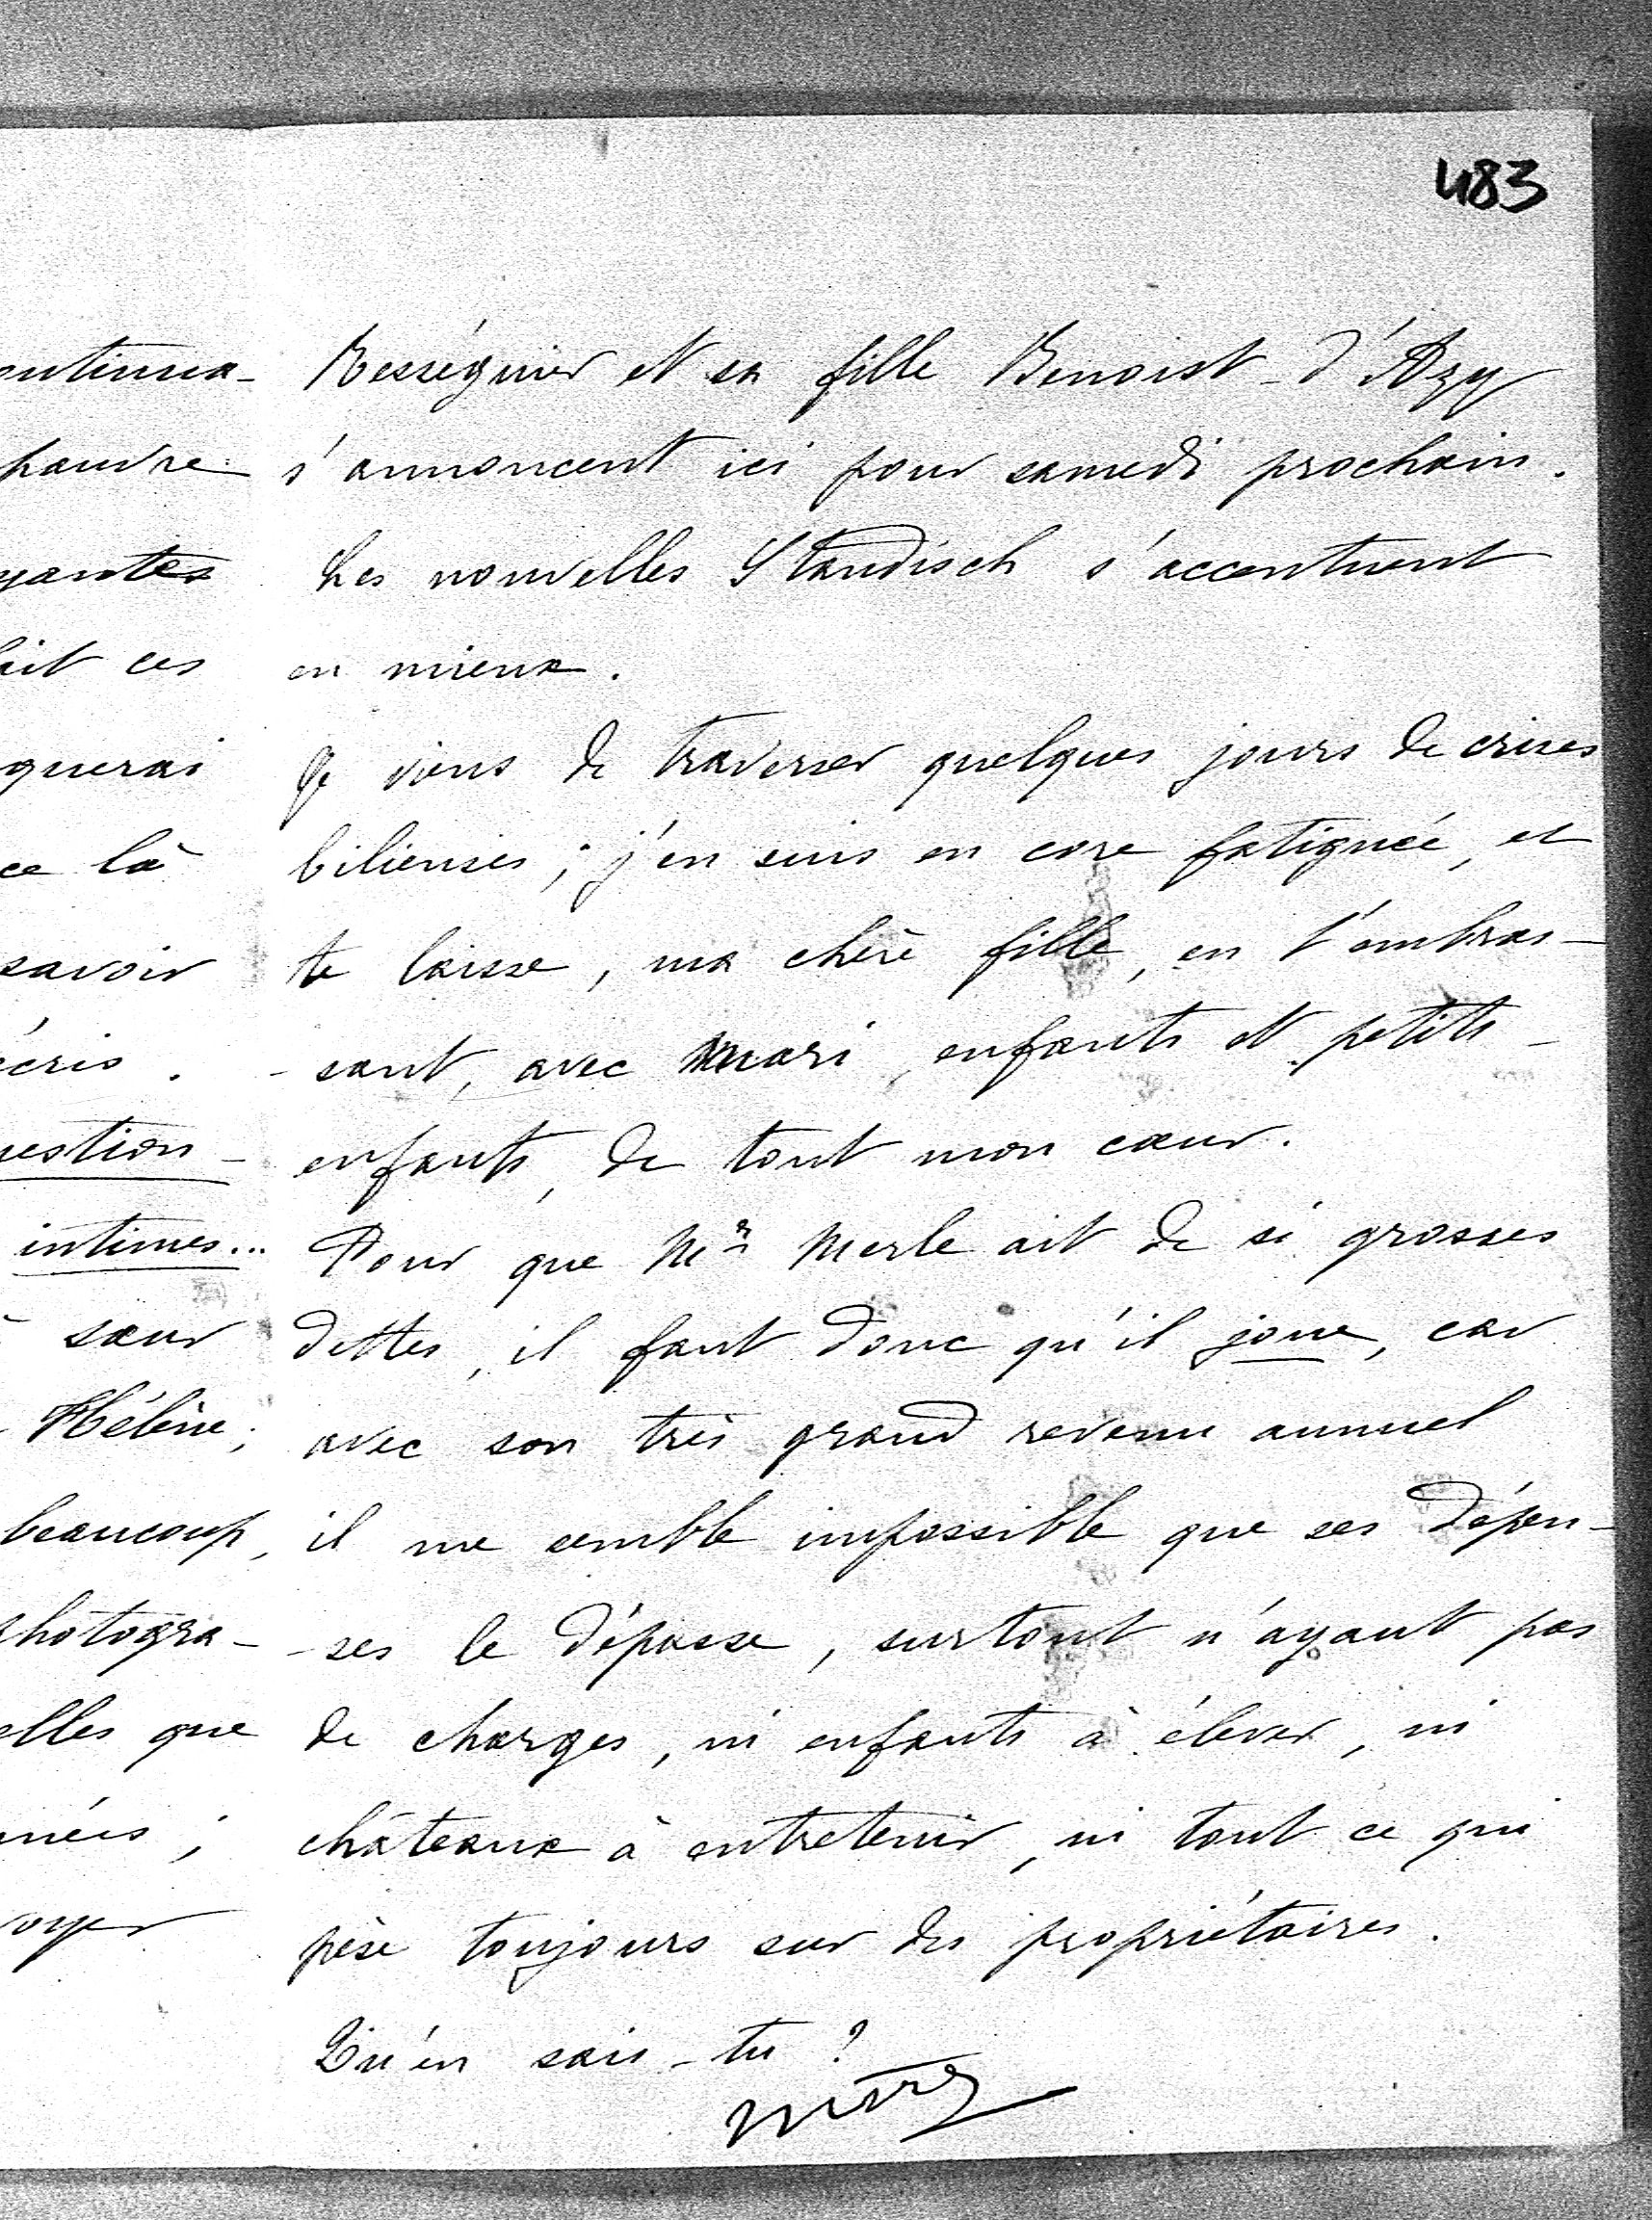 483
Rességuier et sa fille Benoist-d'Azy
s'annoncent ici pour samedi prochain.
Les nouvelles Standisch s'accentuent
en mieux.
Je viens de traverser quelques jours de crises
bilieuses ; j'en suis en core fatiguée, et
te laisse, ma chère fille, en t'embras-
-sant, avec mari, enfants et petits-
enfants, de tout mon cœur.
Pour que Mr Merle ait de si grosses
dettes, il faut donc qu'il joue, car
avec son très grand revenu annuel
il me semble impossible que ses dépen-
-ses le dépasse, surtout n'ayant pas
de charges, ni enfants à élever, ni
châteaux à entretenir, ni tout ce qui
pèse toujours sur des propriétaires.
Qu'en sais-tu ?
pauvre
yantes
ait ces
querai
ce là
savoir
écris.
uestion-
intimes...
sœur
Hélène ;
beaucoup,
photogra-
elles que
nées ;
voyer